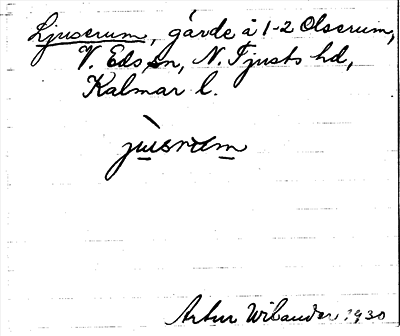 Ljuserum, gärde å 1-2 Olserum,
V. Eds sn, N. Tjusts hd,
Kalmar l.
Artur Wilander 1930